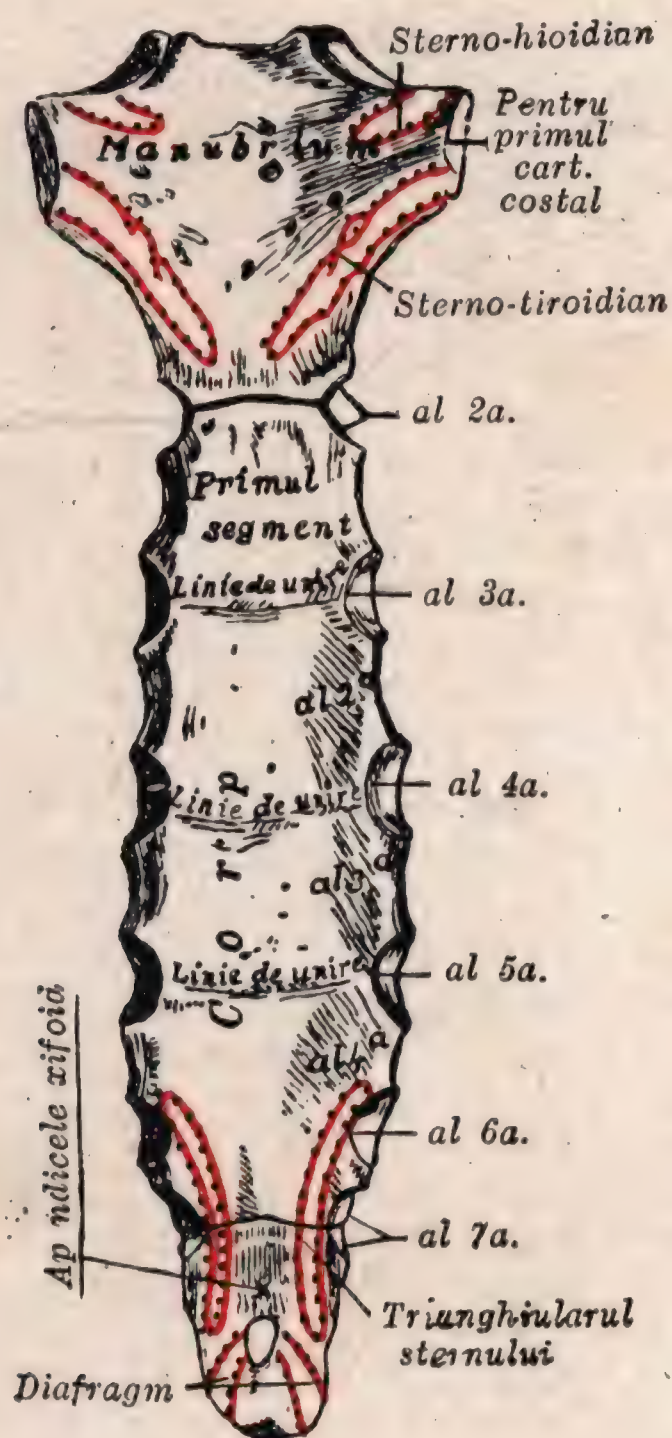 Sterno-hioidian
Pentru
primul
cart.
costal
Manubrium
Sterno-tiroidian
al 2a.
Primul
segment
Linie de unire
al 3a.
al 2a
al 4a.
Linie de unire
al 3a
Corp
al 5a.
Linie de unire
al 4a
Ap ndicele xifoid
al 6a.
al 7a.
Triunghiularul
sternului
Diafragm